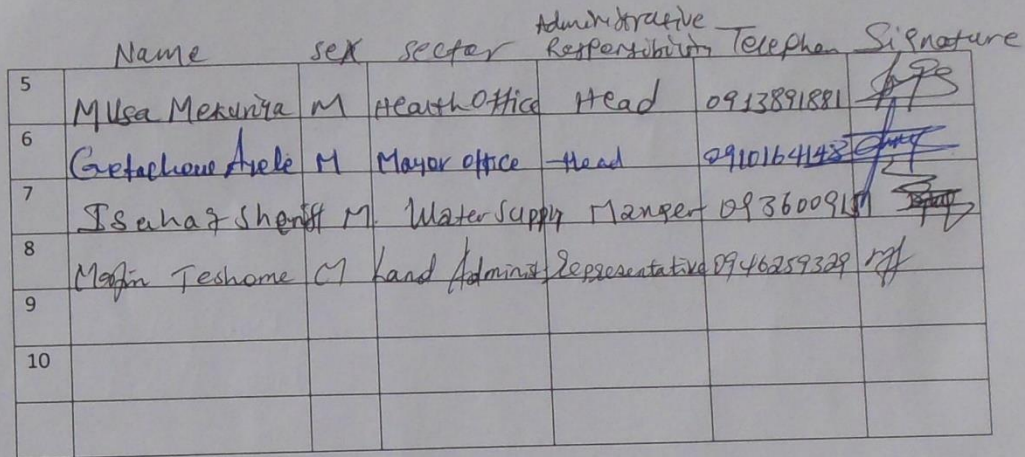 Name sex sector Administrative Responsibility Telephon Signature
5 Musa Mekuria M Health Office Head 0913891881
6 Getachewe Ayele M Mayor office Head 0910164148
7 Isahaq Sheriff M. Water Supply Manger 09360091
8 Teshome M Land Administ Representative 0946259329
9
10